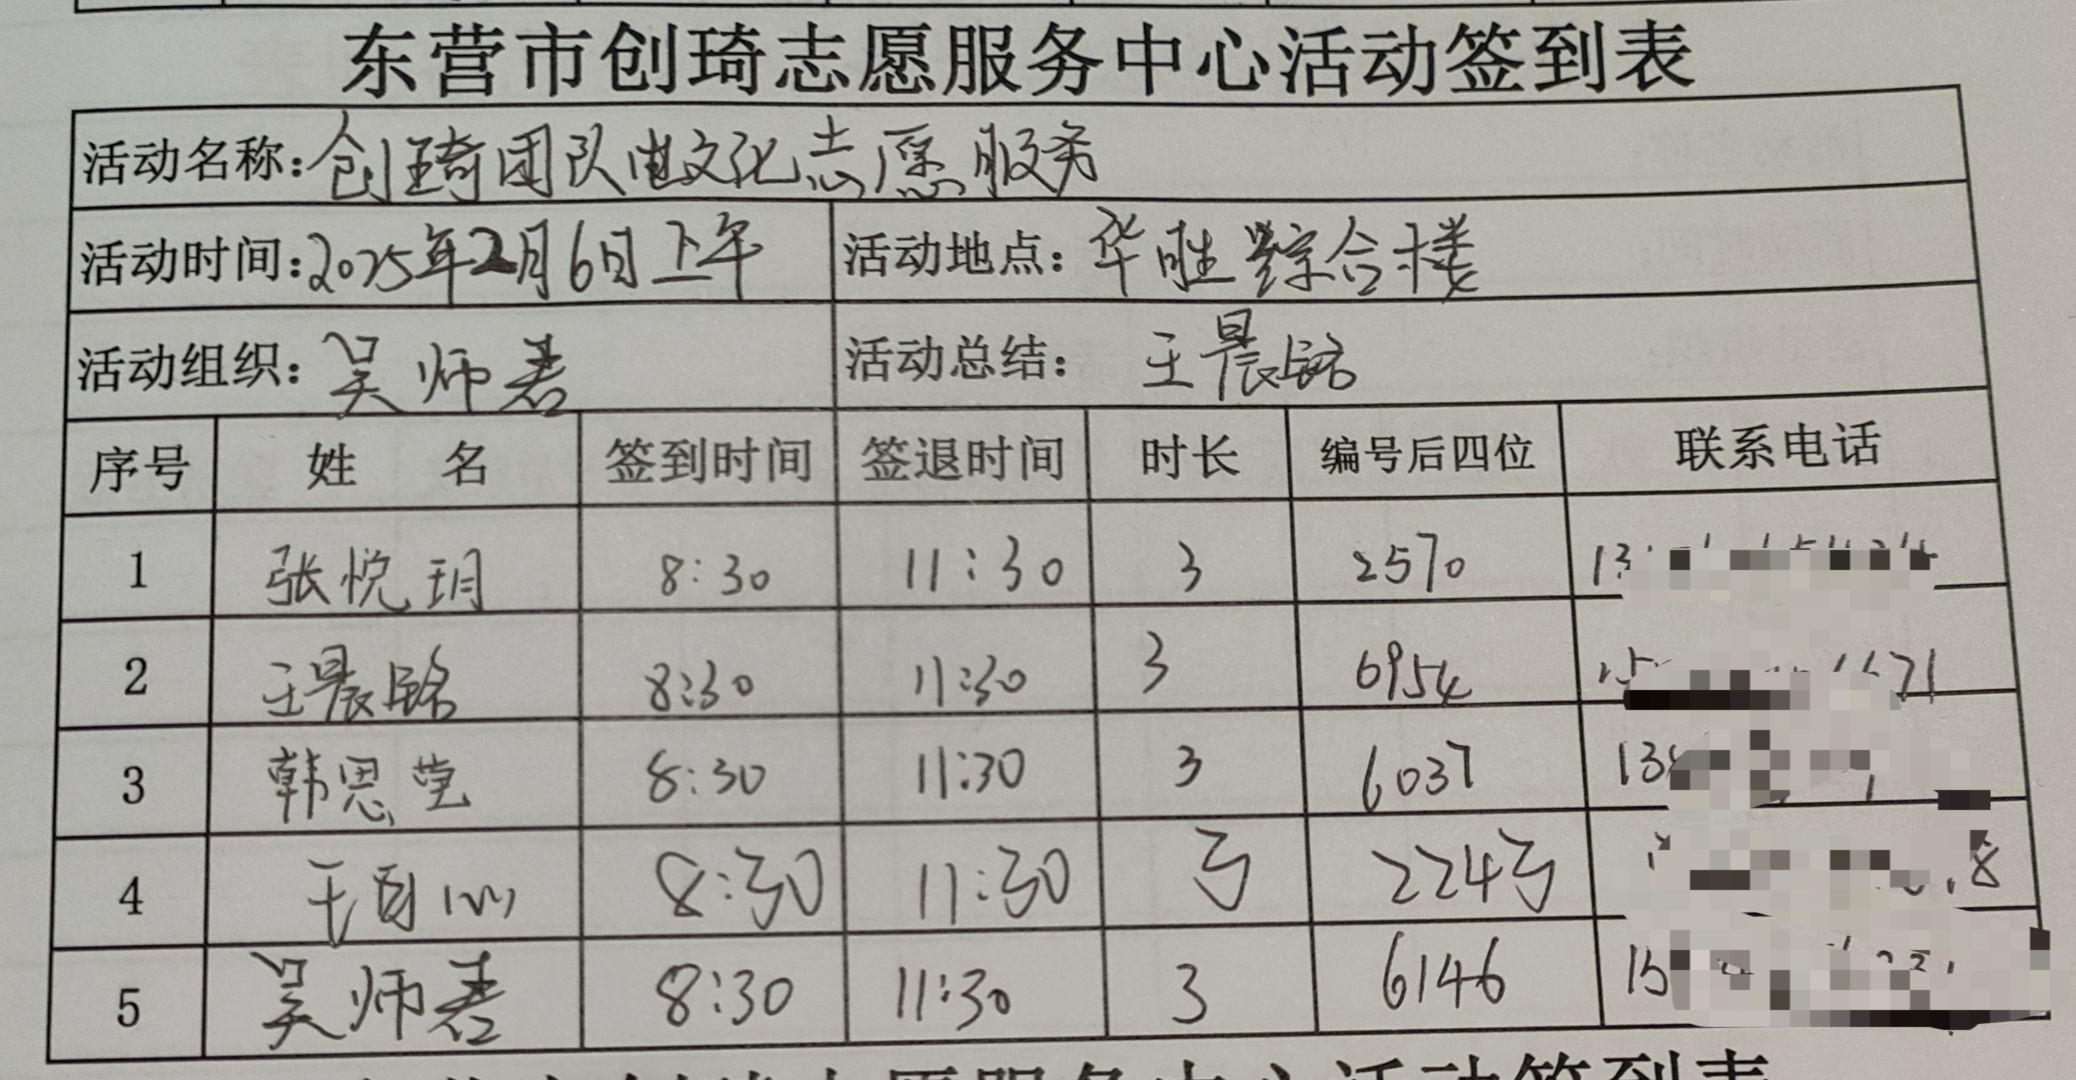 东营市创琦志愿服务中心活动签到表
活动名称：创琦团队电文化志愿服务
活动时间：2025年2月6日上午 活动地点：华胜综合楼
活动组织：吴师君 活动总结：王晨铭
序号 姓 名 签到时间 签退时间 时长 编号后四位 联系电话
1 张悦玥 8:30 11:30 3 2570 13
2 王晨铭 8:30 11:30 3 6954 15 71
3 韩思莹 8:30 11:30 3 6037 13
4 8:30 11:30 3 2243 8
5 吴师君 8:30 11:30 3 6146 15